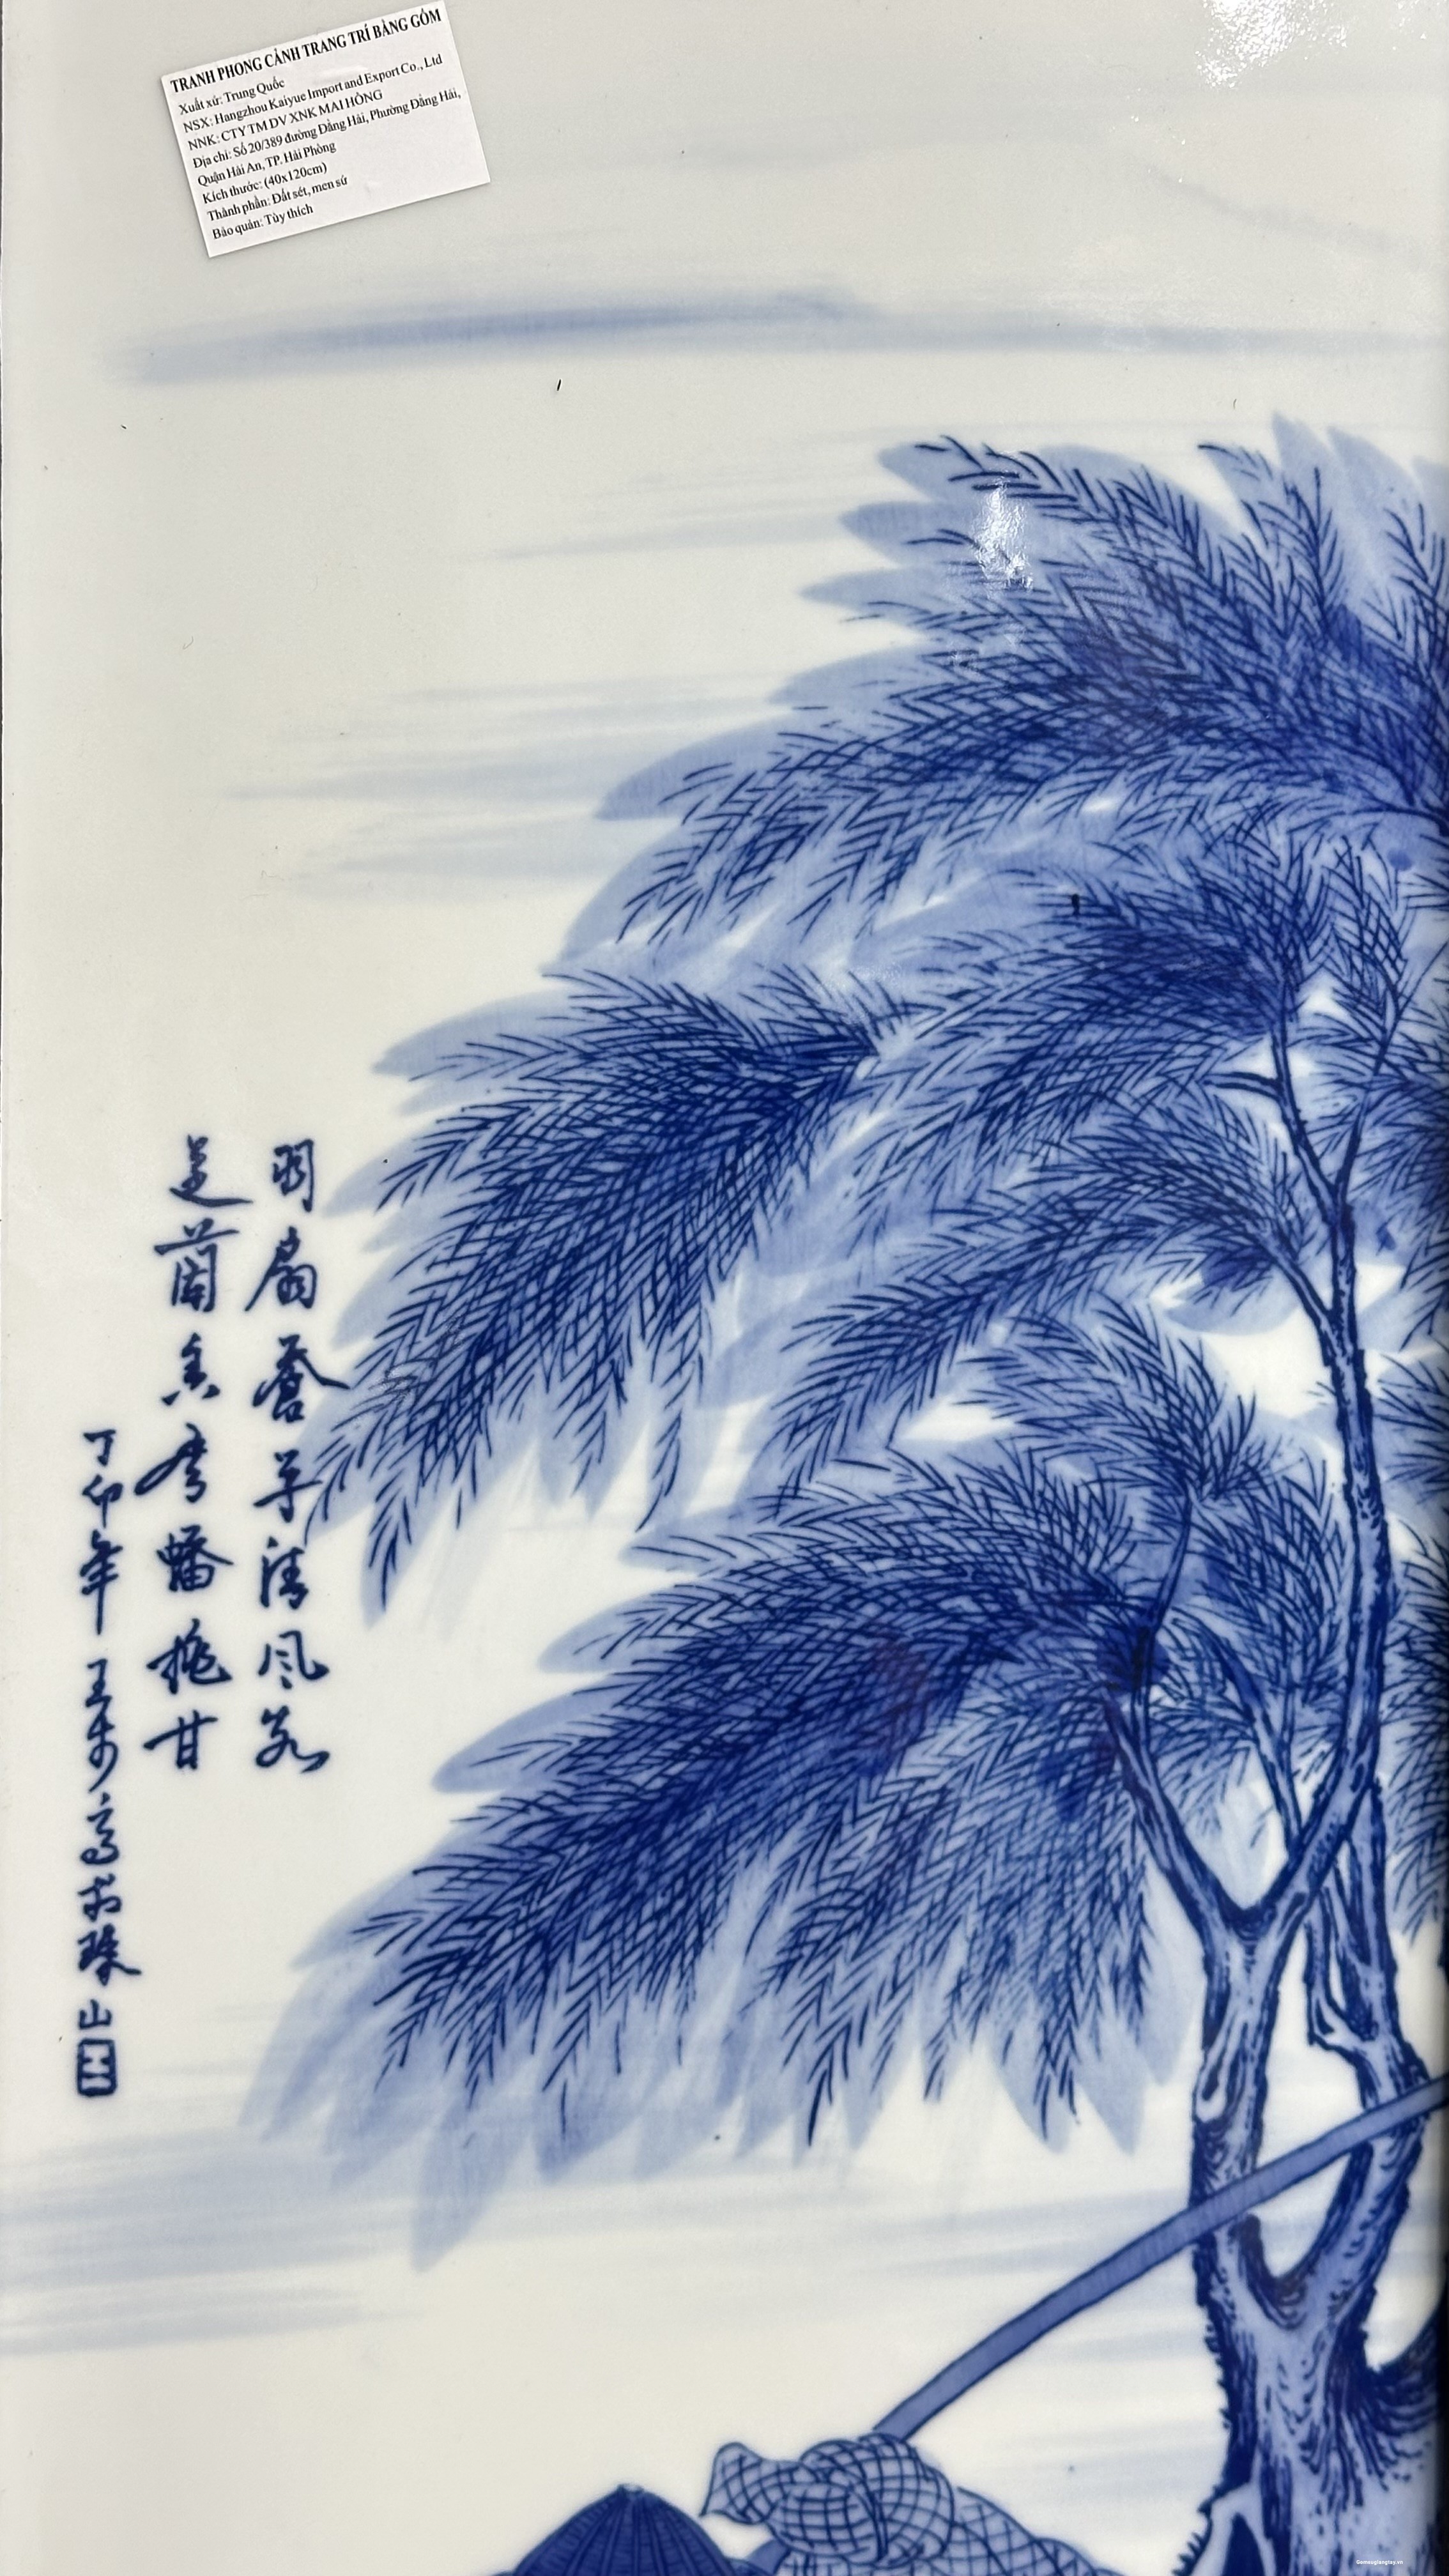 TRANH PHONG CẢNH TRANG TRÍ BẰNG GỐM
Xuất xứ: Trung Quốc
NSX: Hangzhou Kaiyue Import and Export Co., Ltd
NNK: CTY TM DV XNK MAI HỒNG
Địa chỉ: Số 20/389 đường Đằng Hải, Phường Đằng Hải,
Quận Hải An, TP. Hải Phòng
Kích thước: (40x120cm)
Thành phần: Đất sét, men sứ
Bảo quản: Tùy thích
羽扇蒼清風
是香蟠甘
丁卯年王步珠山